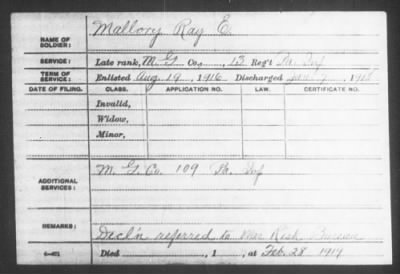 NAME OF SOLDIER: Mallory Ray E.
SERVICE: Late rank, M. G. Co., 13 Reg't Pa. Inf
TERM OF SERVICE: Enlisted Aug. 19, 1916 Discharged
DATE OF FILING. CLASS. APPLICATION NO. LAW. CERTIFICATE NO.
Invalid,
Widow,
Minor,
ADDITIONAL SERVICES: M. G. Co. 109 Pa. Inf
REMARKS: Decl'n referred to War Risk Bureau
Died , 1 , at Feb. 28 1919